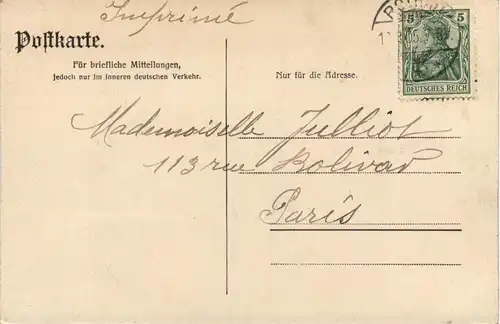 Imprimé
Postkarte.
Für briefliche Mitteilungen,
jedoch nur im inneren deutschen Verkehr.
Nur für die Adresse.
5 5
DEUTSCHES REICH
Mademoiselle Julliot
113 rue Bolivad
Paris